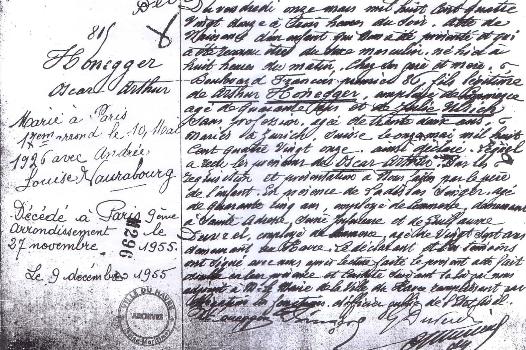 815
Honegger
Oscar Arthur
Marié à Paris
17em arrond le 10 Mai
1926 avec Andrée
Louise Vaurabourg
Décédé à Paris 9ème
arrondissement le
27 novembre 1955.
Le 9 décembre 1955
1296
VILLE DU HAVRE
ARCHIVES
Du vendredi onze mars mil huit cent quatre
vingt douze à trois heures du soir. Acte de
Naissance d'un enfant qui Nous a été présenté et qui
a été reconnu être du sexe masculin, né hier à
huit heures du matin, chez ses père et mère,
Boulevard François premier 86, fils légitime
de Arthur Honegger, employé de commerce
âgé de quarante ans et de Julie Ulrich
sans profession, âgée de trente deux ans
Mariés à Zurich, Suisse le onze mai mil huit
cent quatre vingt onze, ainsi déclaré. Lequel
a reçu les prénoms de Oscar Arthur. Sur la
réquisition et présentation à Nous faites par le père
de l'enfant. En présence de
de quarante cinq ans, employé de commerce, demeurant
à Sainte Adresse, Seine Inférieure et de Guillaume
employé de commerce, âgé de vingt sept ans
demeurant au Havre. Le déclarant et les témoins
ont signé avec nous après lecture faite le présent acte fait
double en leur présence et constaté suivant la loi par nous
adjoint à M. le Maire de la Ville du Havre remplissant par
délégation les fonctions d'officier public de l'Etat civil.